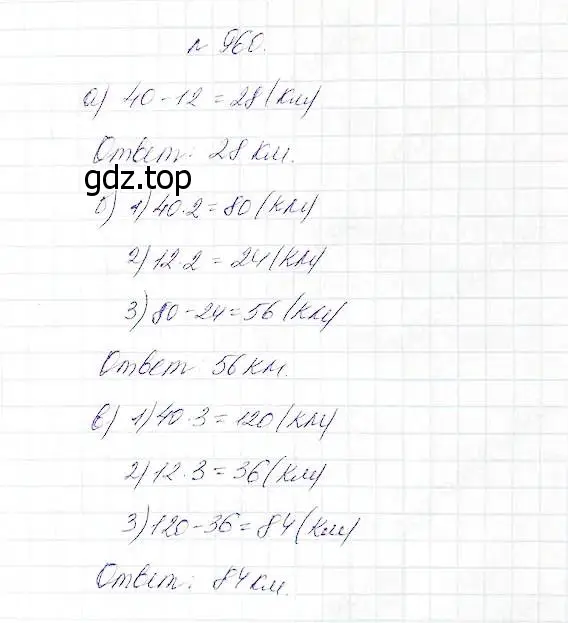 № 960.
а) 40 - 12 = 28 (км)
Ответ: 28 км.
gdz.top
б) 1) 40 · 2 = 80 (км)
2) 12 · 2 = 24 (км)
3) 80 - 24 = 56 (км)
Ответ: 56 км.
в) 1) 40 · 3 = 120 (км)
2) 12 · 3 = 36 (км)
3) 120 - 36 = 84 (км)
Ответ: 84 км.